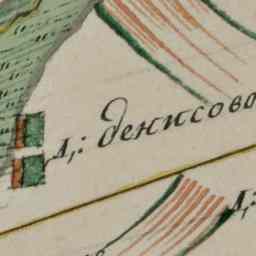 д,: денисова
д,: